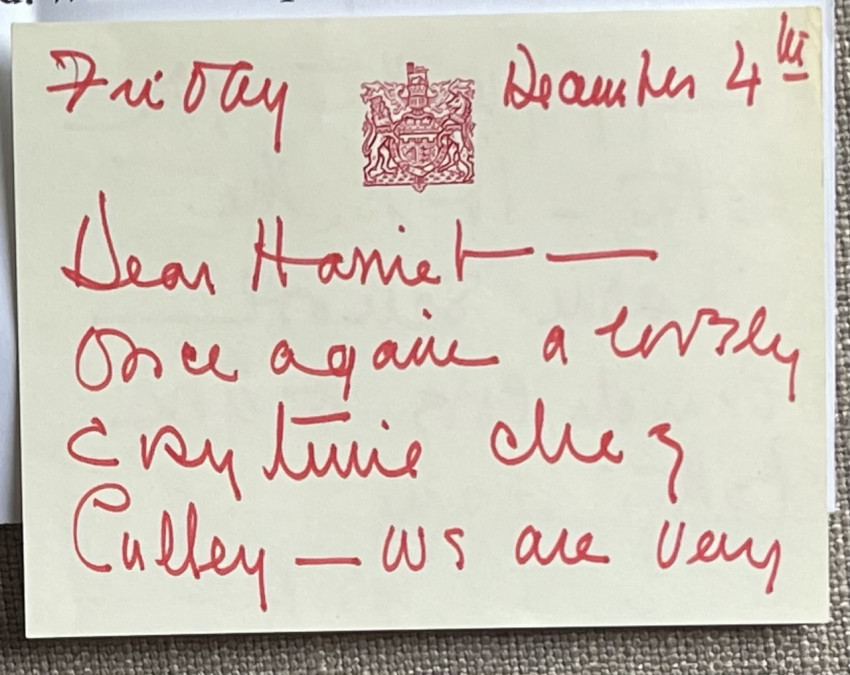 Friday December 4th
Dear Harriet —
Once again a lovely
cosy time chez
Culley — We are very